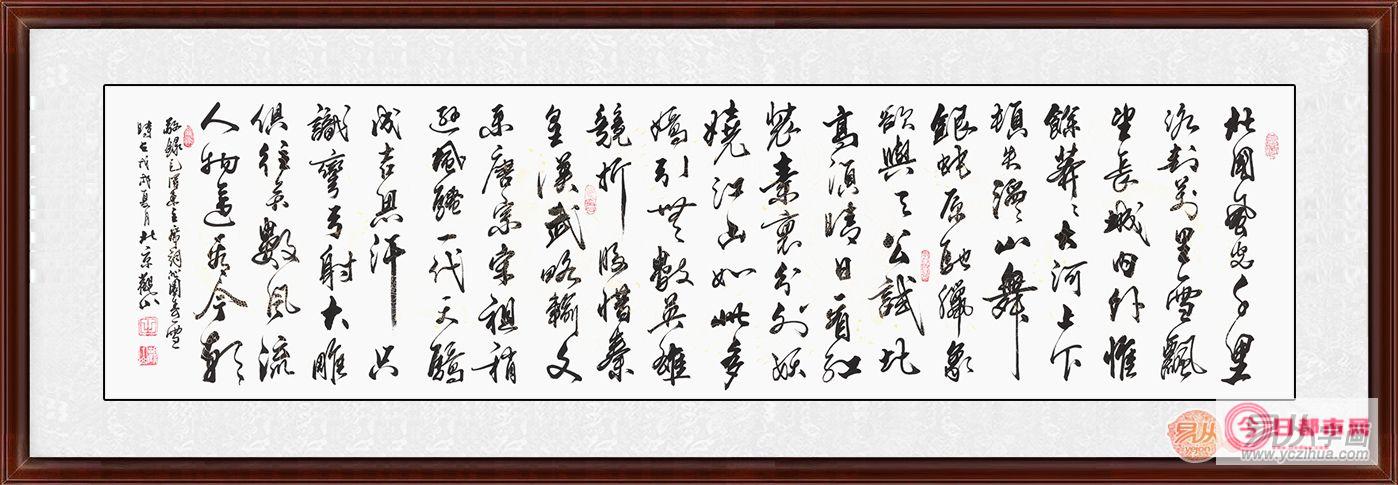 北國風光千里
冰封萬里雪飄
望長城內外惟
餘莽〻大河上下
頓失滔〻山舞
銀蛇原馳臘象
欲與天公試比
高須晴日看紅
裝素裹分外妖
嬈江山如此多
嬌引無數英雄
競折腰惜秦
皇漢武略輸文
采唐宗宋祖稍
遜風騷一代天驕
成吉思汗只
識彎弓射大雕
俱往矣數風流
人物還看今朝
敬錄毛澤東主席詞沁園春雪
時在戊戌夏月北京觀山
易从
易从字画
www.yczihua.com
今日都市网